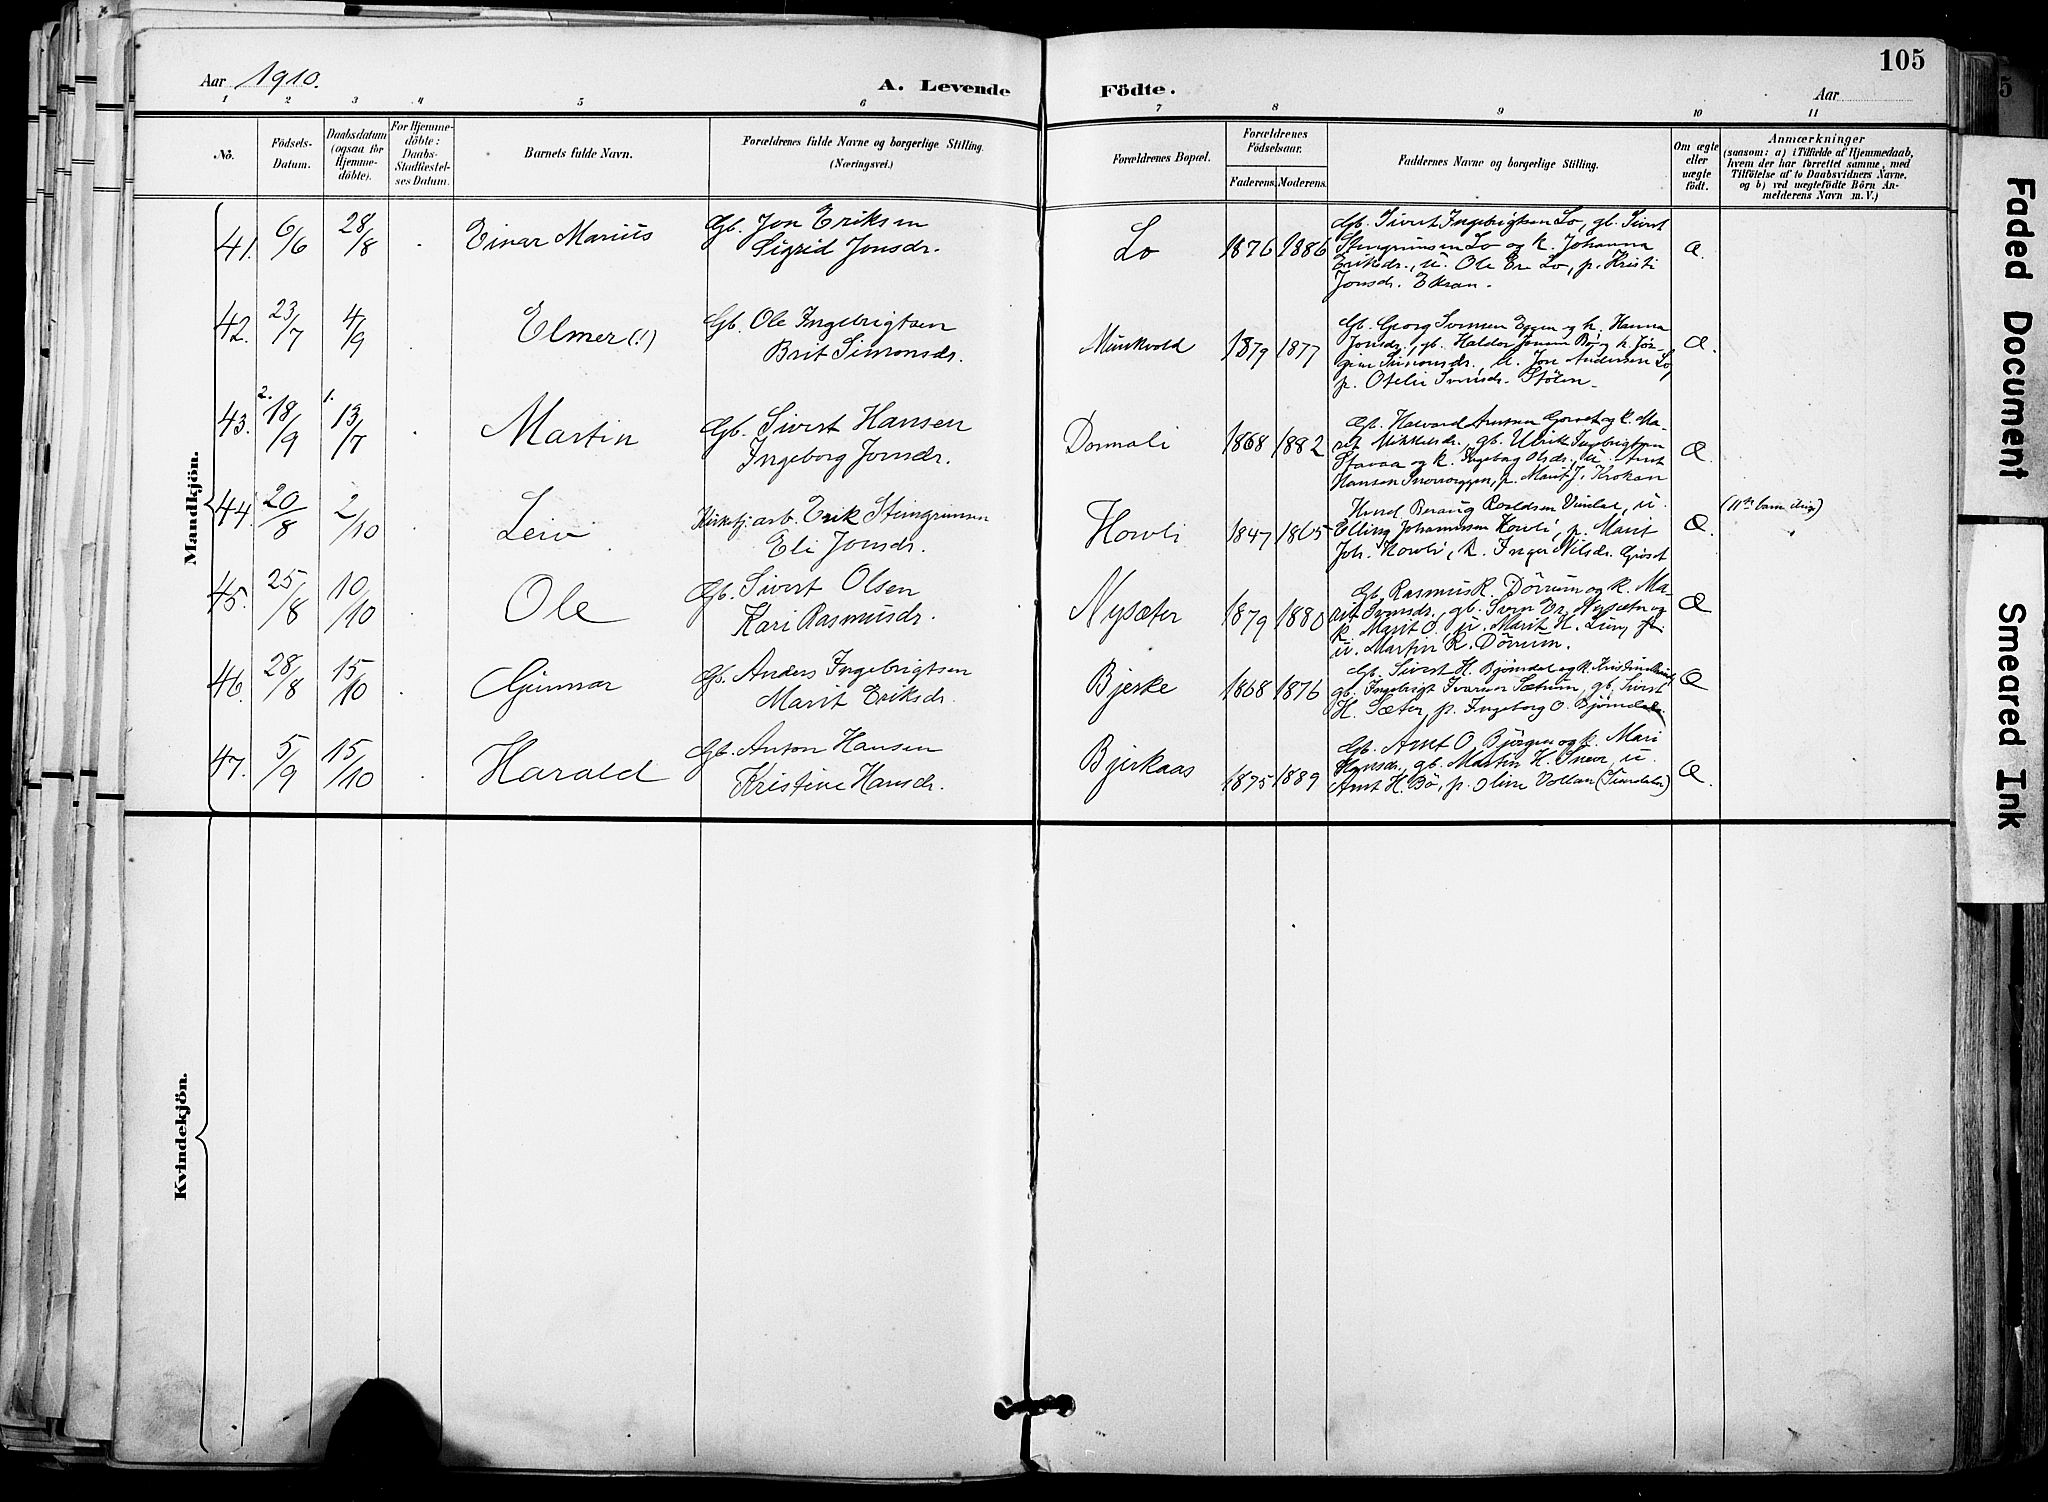 Aar 1910.
A. Levende Födte.
105
Aar
1 2 3 4 5 6 7 8 9 10 11
No.
Födsels-Datum.
Daabsdatum (ogsaa for Hjemme-döbte).
For Hjemme-döbte: Daabs-Stadfæstel-ses Datum.
Barnets fulde Navn.
Forældrenes fulde Navne og borgerlige Stilling. (Næringsvei.)
Forældrenes Bopæl.
Forældrenes Födselsaar.
Faderens. Moderens.
Faddernes Navne og borgerlige Stilling.
Om ægte eller uægte født.
Anmærkninger
(saasom: a) i Tilfælde af Hjemmedaab,
hvem der har forrettet samme, med
Tilføielse af to Daabsvidners Navne.
og b) ved uægtefödte Börn An-
melderens Navn m. V.)
Mandkjön.
41. 6/6 28/8 Einar Marius Gb. Jon Eriksen
Sigrid Jonsdr. Lo 1876 1886 Gb. Sivert Ingebrigtsen Lo, gb. Sivert
Steingrimsen Lo og k. Johanna
Eriksdr., u. Ole Er. Lo, p. Kristi
Jonsdr. Ekran. Æ.
42. 23/7 4/9 Elmer (!) Gb. Ole Ingebrigtsen
Brit Simonsdr. Munkvold 1879 1877 Gb. Georg Svensen Eggen og k. Hanna
Jonsdr., gb. Haldor Jonsen Bø og k. Jør-
gine Simonsdr., u. Jon Andersen Lo,
p. Otelie Svendsdr. Stölen. Æ.
43. 2. 18/9 1. 13/7 Martin Gb. Sivert Hansen
Ingeborg Jonsdr. Dormali 1868 1882 Gb. Halvard Arntsen Gorset og k. Ma-
rit Mikkelsdr., gb. Ulrik Ingebrigtsen
Stavaa og k. Ingeborg Olsdr., u. Arnt
Hansen, p. Marit J. Krokan Æ.
44. 20/8 2/10 Leiv Kirketj. arb. Erik Steingrimsen
Eli Jonsdr. Hovli 1847 1865 Beraug Roaldsen Vindal, u.
Elling Johannessen Hovli, p. Marit
Joh. Hovli, k. Inger Nilsdr. Gorset Æ. (11te barn)
45. 25/8 10/10 Ole Gb. Sivert Olsen
Kari Rasmusdr. Nysæter 1879 1880 Gb. Rasmus R. Dörrum og k. Ma-
rit Svensdr., gb. Sven Er. Nysæter og
k. Marit O., u. Marit H.
u. Martin R. Dörrum. Æ
46. 28/8 15/10 Gunnar Gb. Anders Ingebrigtsen
Marit Eriksdr. Bjerke 1868 1876 Gb. Sivert H. Bjørndal og k.
gb. Ingebrigt Ivarsen Sætrum, gb. Sivert
H. Sæter, p. Ingeborg O. Bjørndal. Æ
47. 5/9 15/10 Harald Gb. Anton Hansen
Kristine Hansdr. Bjerkaas 1875 1889 Gb. Arnt O. Bjørgen og k. Mari
Hansdr., gb. Martin H. Snove, u.
Arnt H. Bö, p. Oline Vollan (Sundalen) Æ.
Kvindekjön.
Faded Document
Smeared Ink